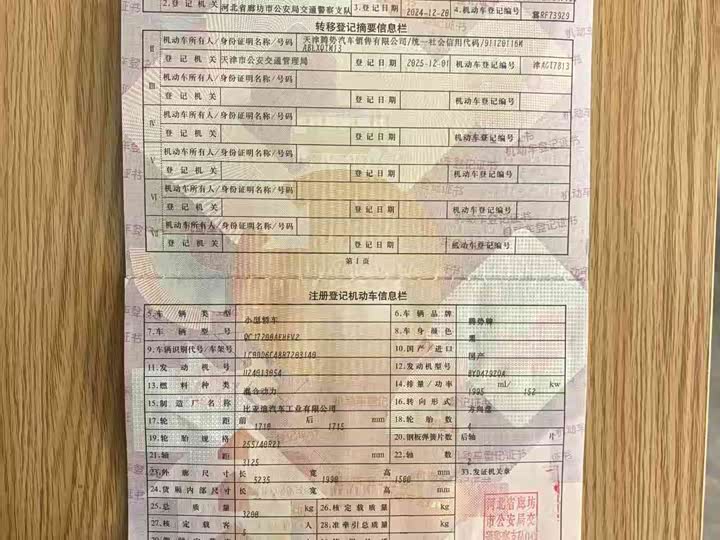 2.登记机关 河北省廊坊市公安局交通警察支队 3.登记日期 2024-12-28 4.机动车登记编号 冀RF73929
转移登记摘要信息栏
Ⅱ 机动车所有人/身份证明名称/号码 天津腾势汽车销售有限公司/统一社会信用代码/
登记机关 天津市公安交通管理局 登记日期 2025-12-01 机动车登记编号
Ⅲ 机动车所有人/身份证明名称/号码
登记机关 登记日期 机动车登记编号
Ⅳ 机动车所有人/身份证明名称/号码
登记机关 登记日期 机动车登记编号
Ⅴ 机动车所有人/身份证明名称/号码
登记机关 登记日期 机动车登记编号
Ⅵ 机动车所有人/身份证明名称/号码
登记机关 登记日期 机动车登记编号
Ⅶ 机动车所有人/身份证明名称/号码
登记机关 登记日期 机动车登记编号
第1页
注册登记机动车信息栏
5.车辆类型 小型轿车 6.车辆品牌 腾势牌
7.车辆型号 8.车身颜色 黑
9.车辆识别代号/车架号 10.国产/进口 国产
11.发动机号 12.发动机型号
13.燃料种类 混合动力 14.排量/功率 1995 ml/ 152 kw
15.制造厂名称 比亚迪汽车工业有限公司 16.转向形式 方向盘
17.轮距 前 1710 后 1715 mm 18.轮胎数 4
19.轮胎规格 255/40R21 20.钢板弹簧片数 后轴 片
21.轴距 3125 mm 22.轴数 2
23.外廓尺寸 长 5235 宽 1990 高 1500 mm 33.发证机关章
24.货厢内部尺寸 长 宽 高 mm
25.总质量 3200 kg 26.核定载质量 kg
27.核定载客 5 人 28.准牵引总质量 kg
河北省廊坊
市公安局交